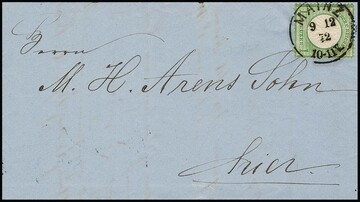 MAINZ
9 12
72
10-11V.
Herrn
M. H. Arens Sohn
hier.